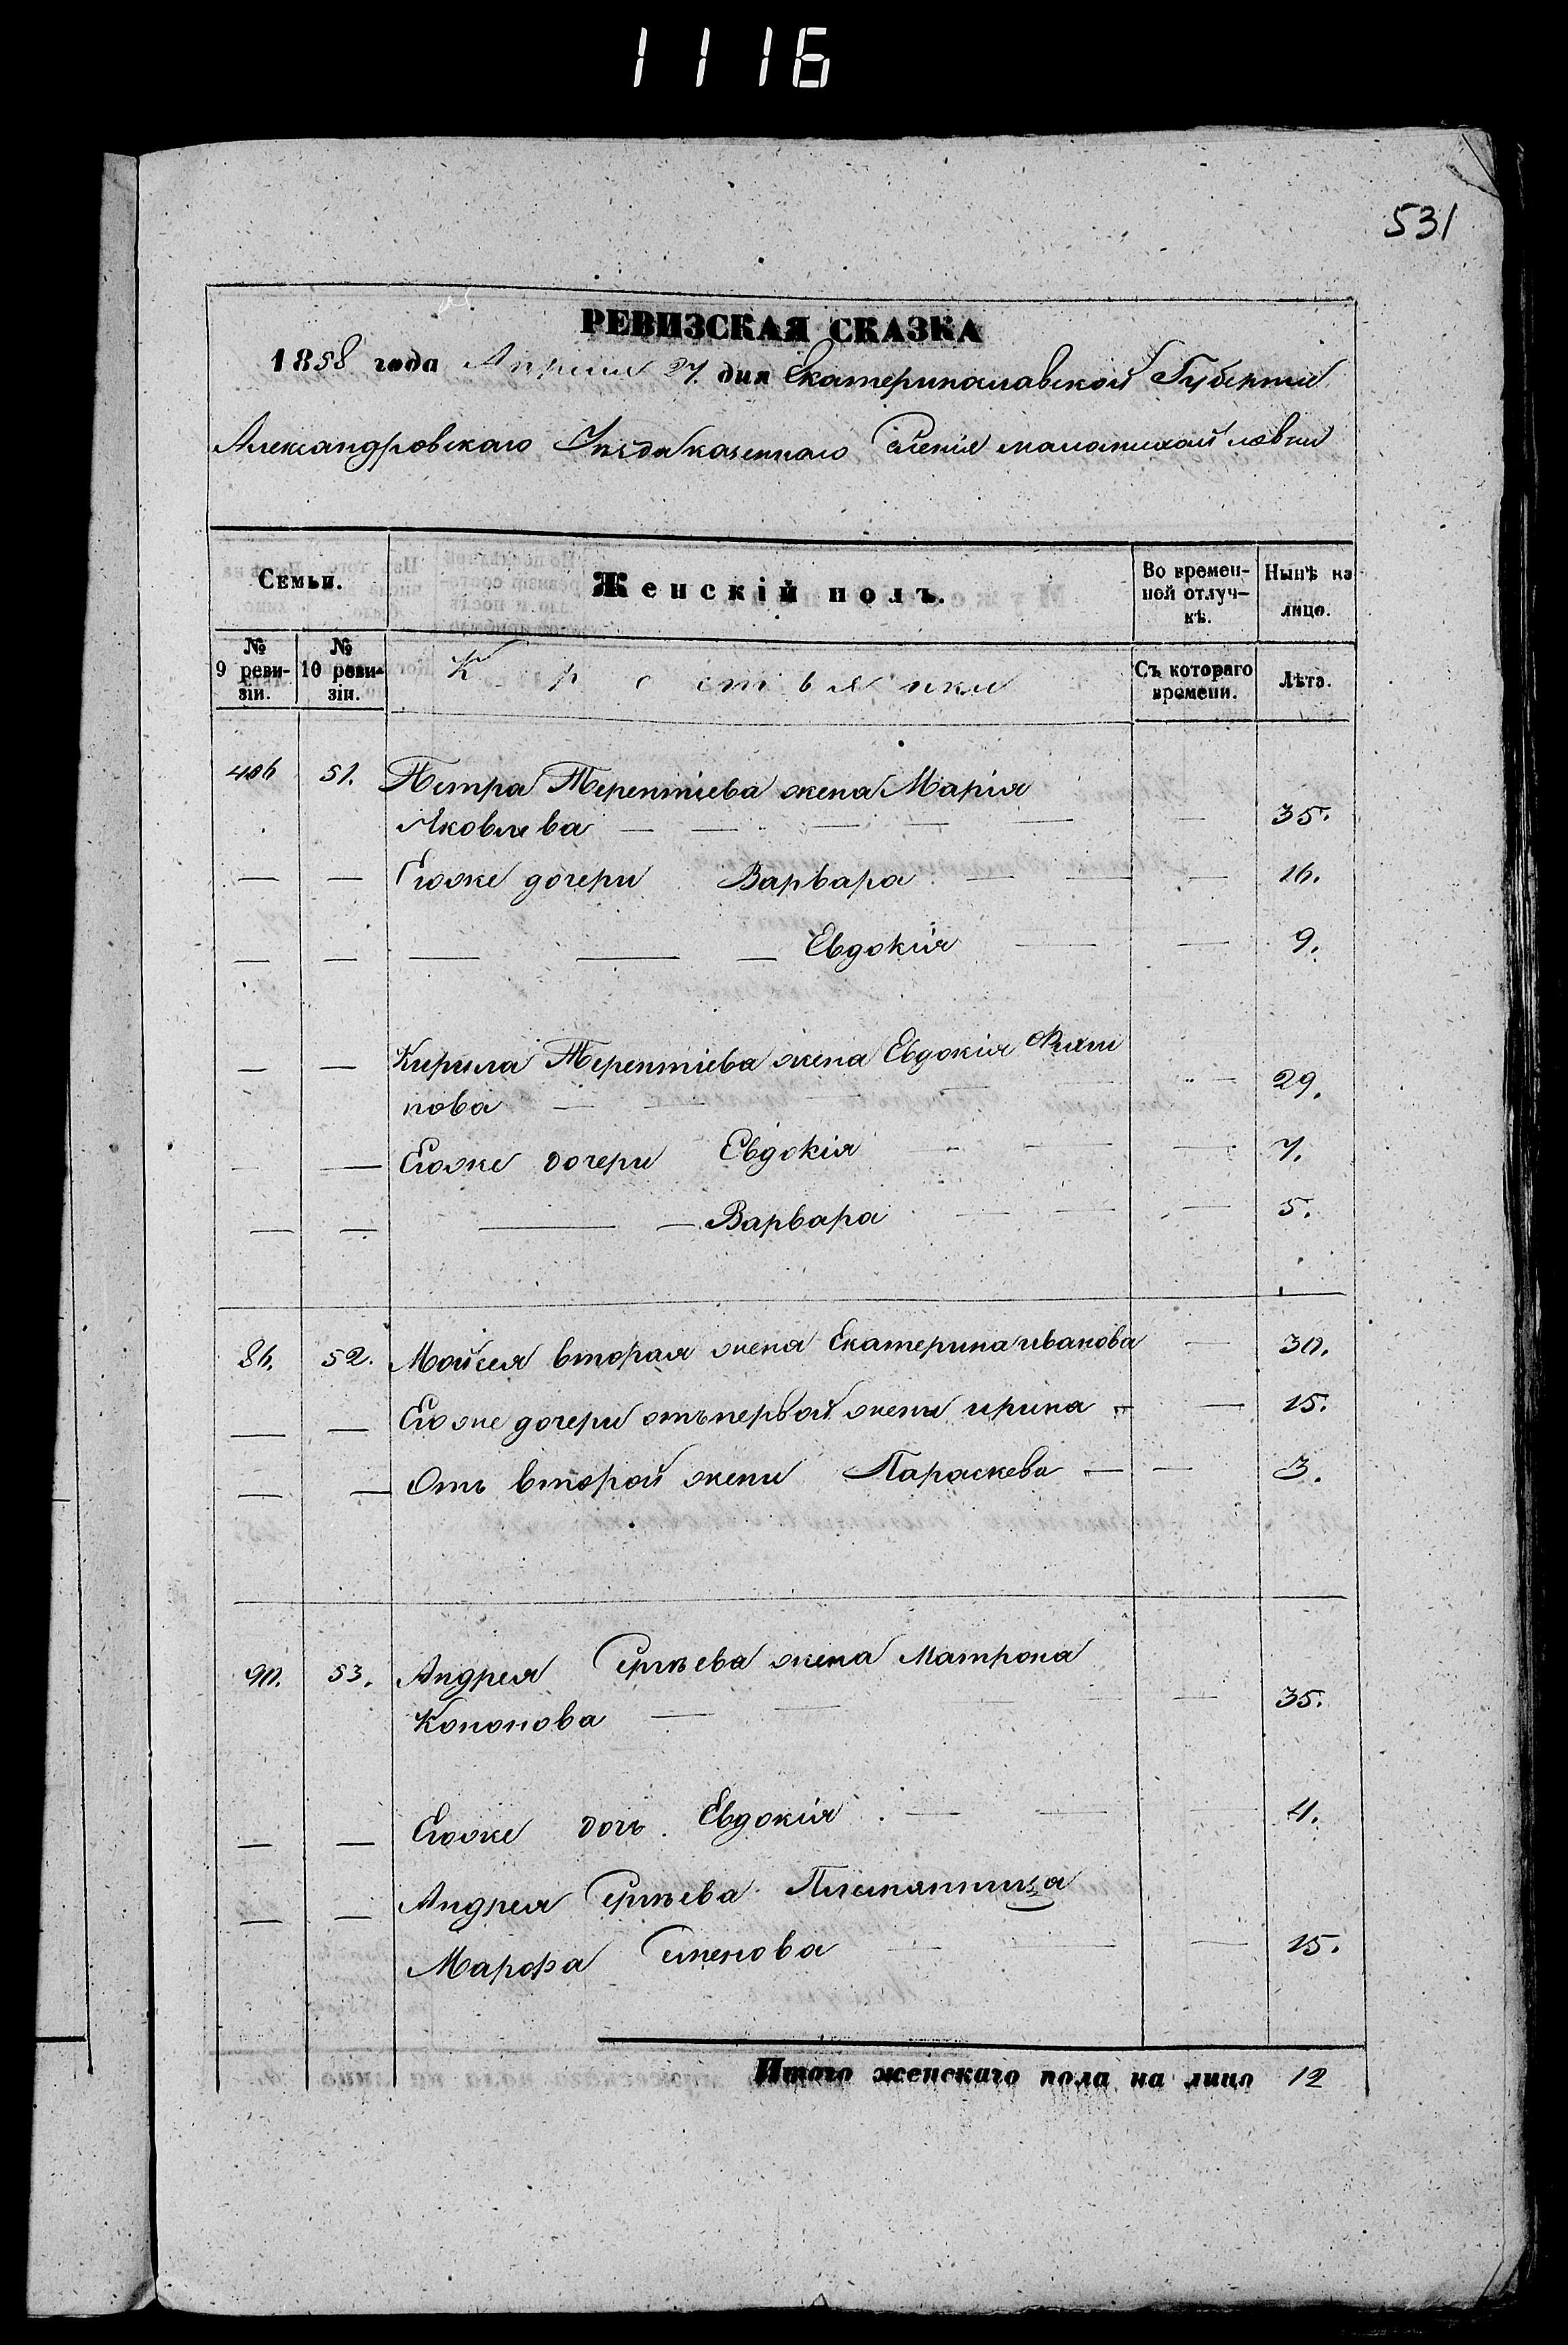 1116
531
РЕВИЗСКАЯ СКАЗКА
1858 года Апреля 27. дня Екатеринославской Губерніи
Александровскаго Уѣзда казеннаго Селенія малотихой ловки
Семьи. Женскій полъ. Во времен- Нынѣ на
ной отлуч- лицо.
кѣ.
№ №
9 реви- 10 реви- Крестьянки Съ котораго Лѣта.
зіи. зіи. времени.
406 51. Петра Терентіева жена Марія
Яковлева — — — — — — 35.
— — Егоже дочери Варвара — — — 16.
— — — — — Евдокія — — 9.
— — Кирила Терентіева жена Евдокія Филип
пова — — — — — 29.
— — Егоже дочери Евдокія — — — 7.
— — — — Варвара — — — 5.
86. 52. Мойсея вторая жена Екатерина иванова — 30.
— — Егоже дочери отъ первой жены ирина — — 15.
— — Отъ второй жены Параскева — — 3.
90. 53. Андрея Сергѣева жена Матрона
Кононова — — — — — 35.
— — Егоже дочь Евдокія — — — 4.
— — Андрея Сергѣева Племянница
Марфа Семенова — — — 15.
Итого женскаго пола на лицо 12